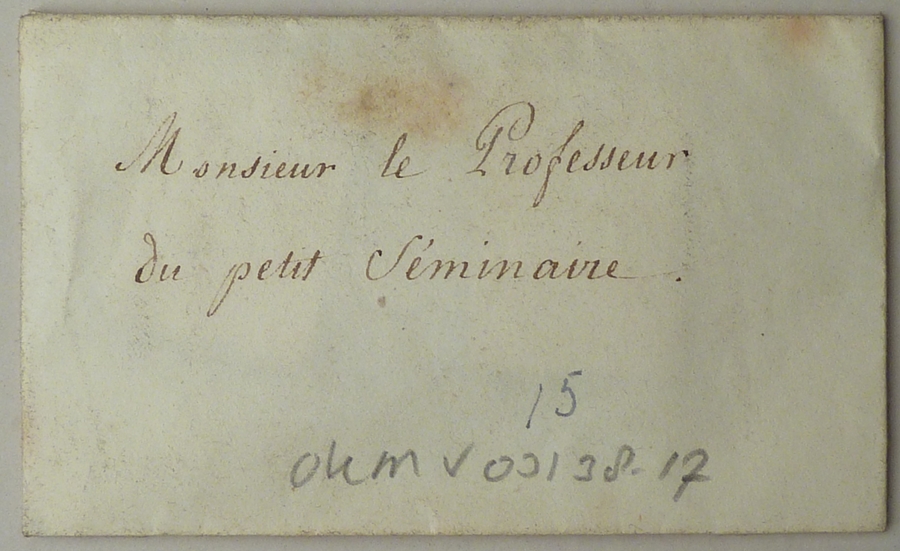 Monsieur le Professeur
du petit Séminaire.
15
OKM V 00138-17